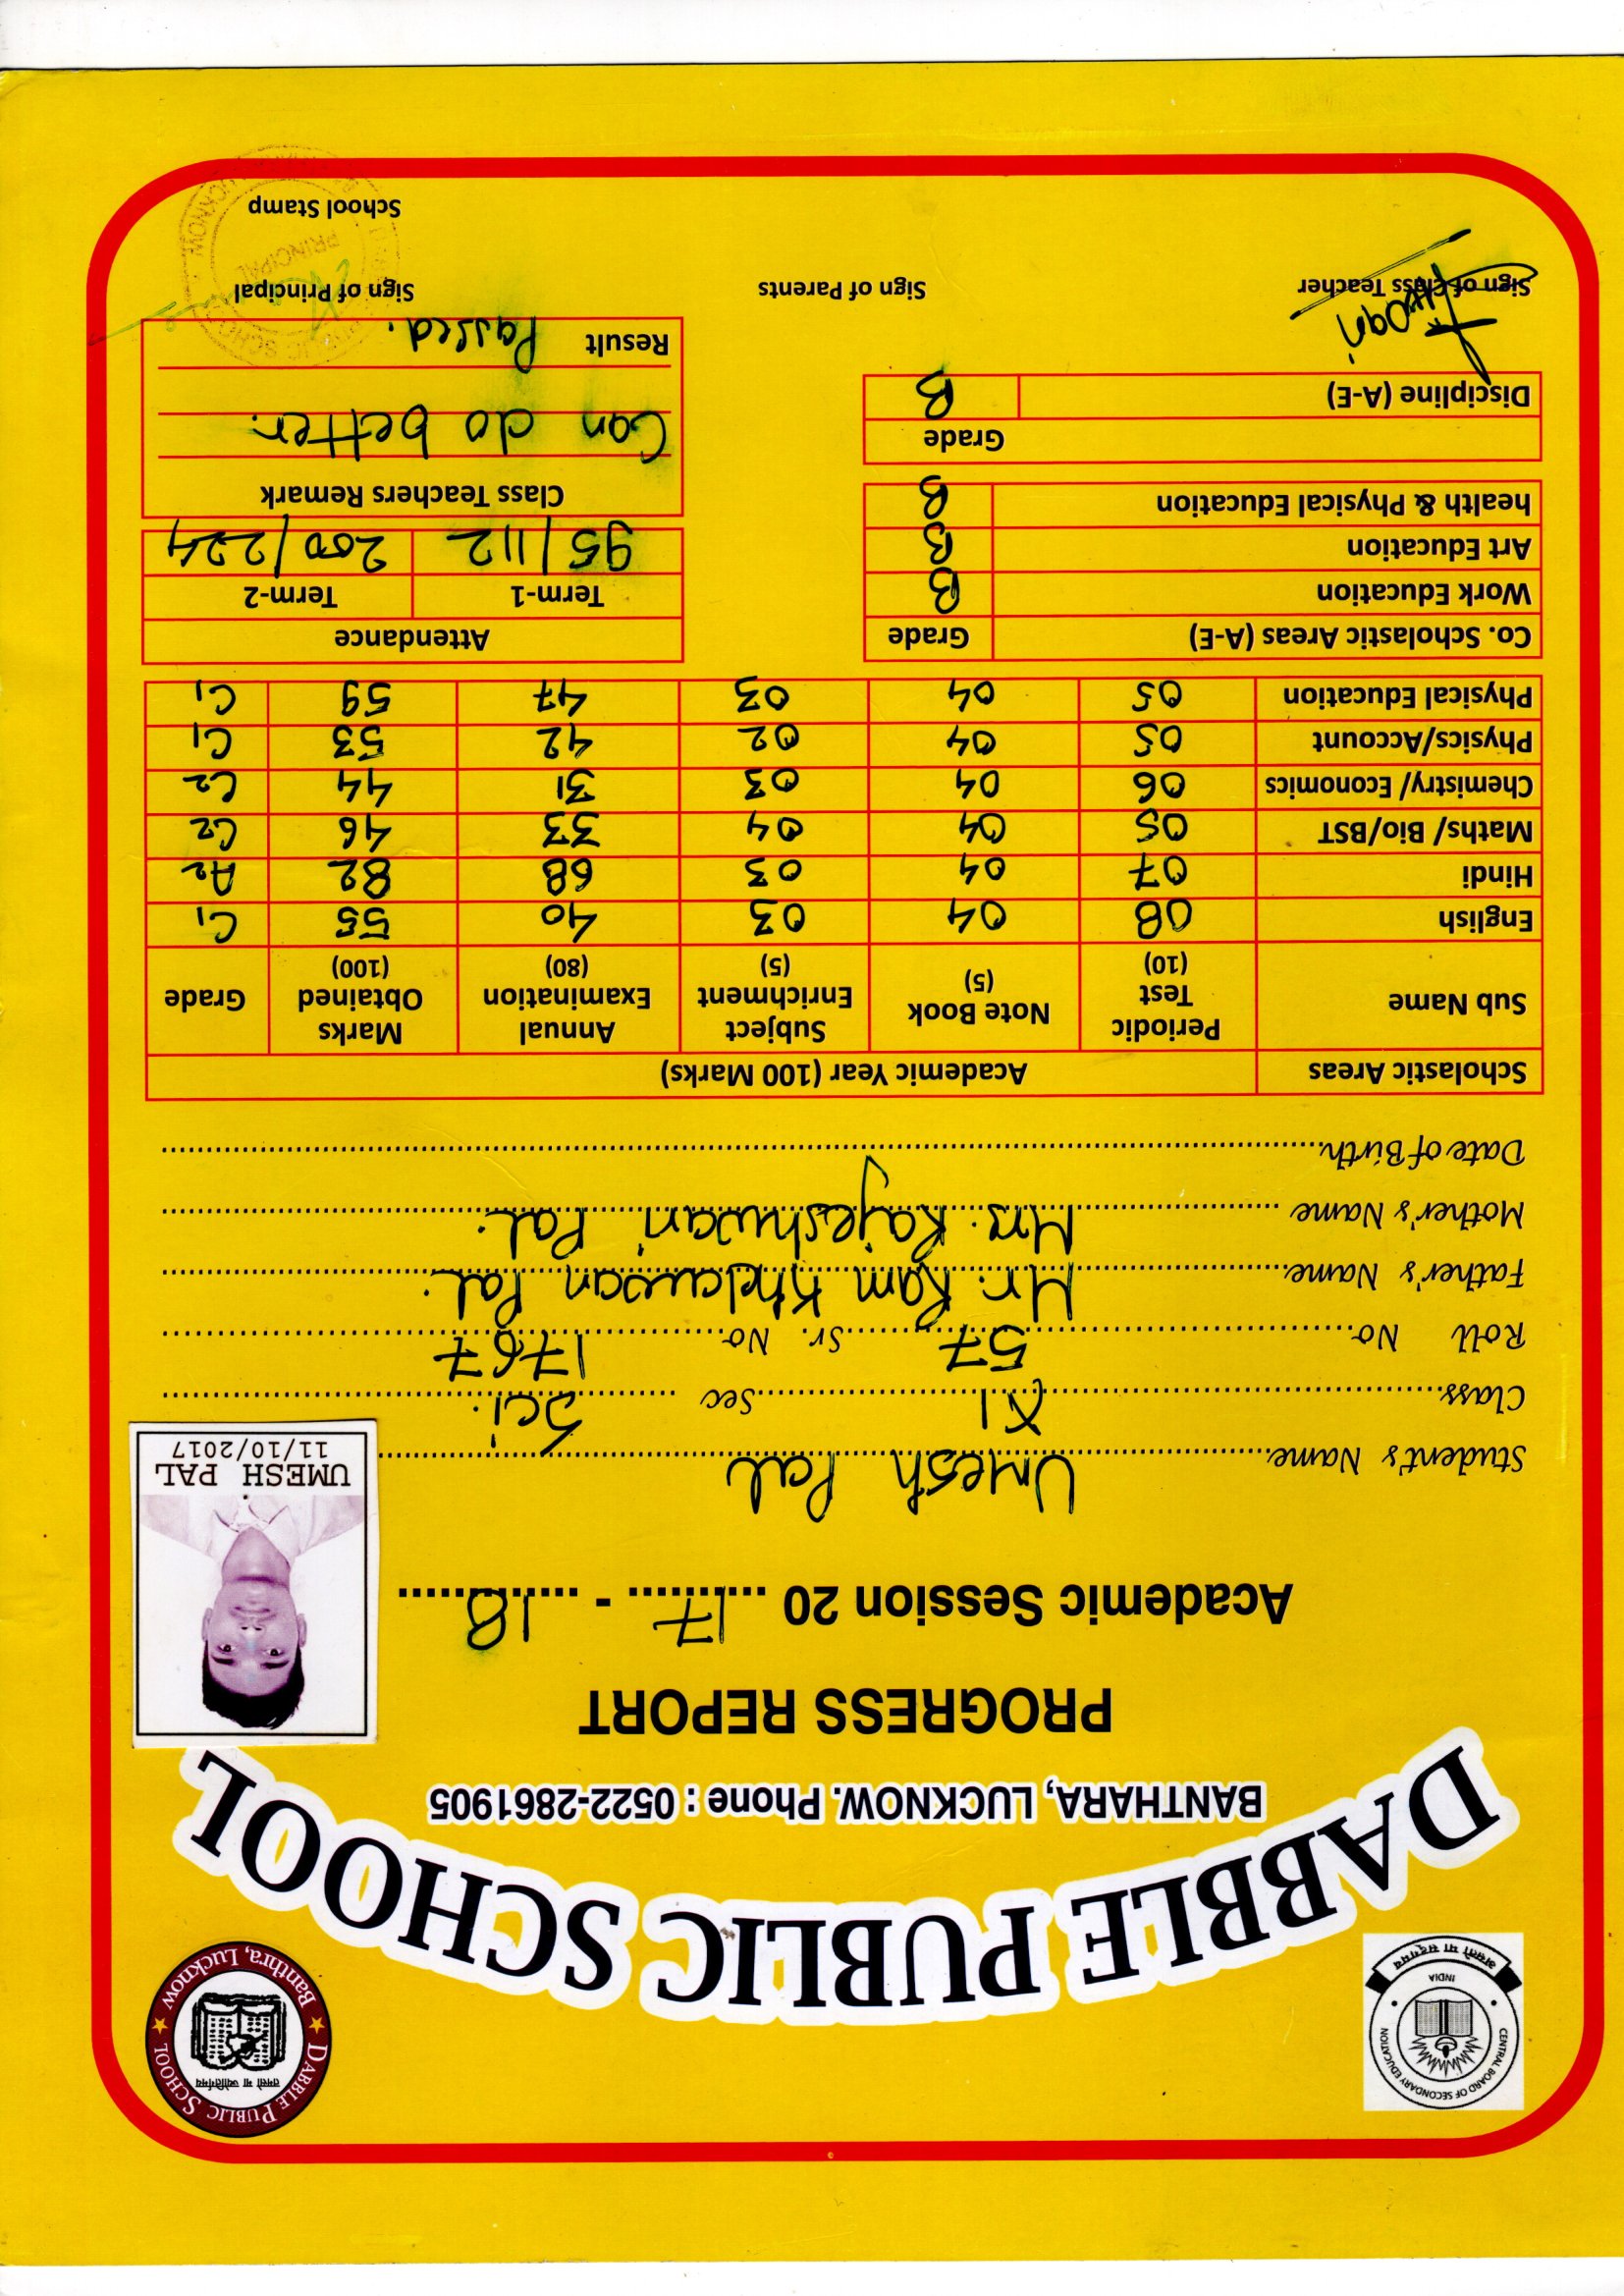 CENTRAL BOARD OF SECONDARY EDUCATION
INDIA
असतो मा सद्गमय
DABBLE PUBLIC SCHOOL
तमसो मा ज्योतिर्गमय
Banthra, Lucknow
DABBLE PUBLIC SCHOOL
BANTHARA, LUCKNOW. Phone : 0522-2861905
PROGRESS REPORT
Academic Session 20 ...17... - ...18...
UMESH PAL
11/10/2017
Student's Name Umesh Pal
Class XI Sec Sci.
Roll No. 57 Sr. No. 1767
Father's Name Mr. Ram Khelawan Pal.
Mother's Name Mrs. Rajeshwari Pal.
Date of Birth
Scholastic Areas Academic Year (100 Marks)
Sub Name Periodic Test (10) Note Book (5) Subject Enrichment (5) Annual Examination (80) Marks Obtained (100) Grade
English 08 04 03 40 55 C1
Hindi 07 04 03 68 82 A2
Maths/ Bio/BST 05 04 04 33 46 C2
Chemistry/ Economics 06 04 03 31 44 C2
Physics/Account 05 04 02 42 53 C1
Physical Education 05 04 03 47 59 C1
Co. Scholastic Areas (A-E) Grade
Work Education B
Art Education B
health & Physical Education B
Grade
Discipline (A-E) B
Attendance
Term-1 Term-2
95/112 200/224
Class Teachers Remark
Can do better.
Result Passed.
Sign of Class Teacher Sign of Parents Sign of Principal
PRINCIPAL
School Stamp